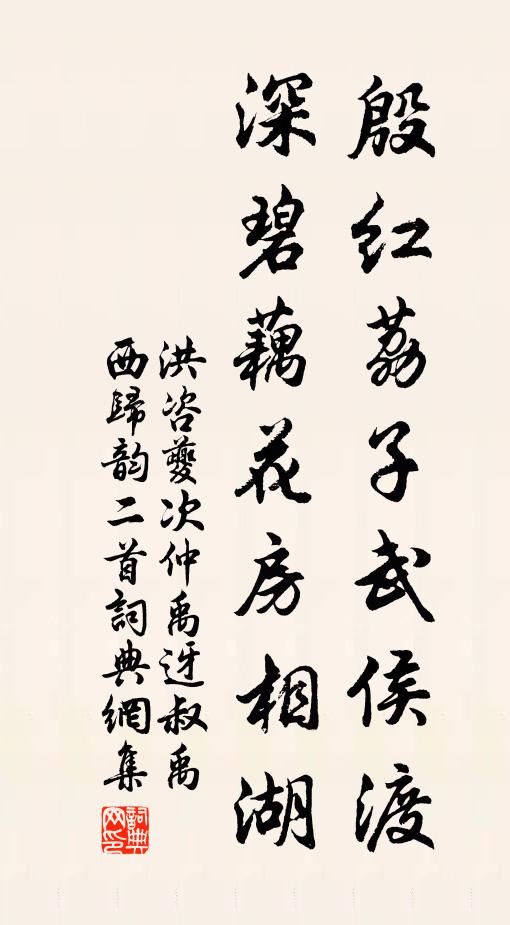 殷红荔子武侯渡
深碧藕花房相湖
洪咨夔次仲禹迓叔禹
西歸韵二首詞典網集
詞典網印